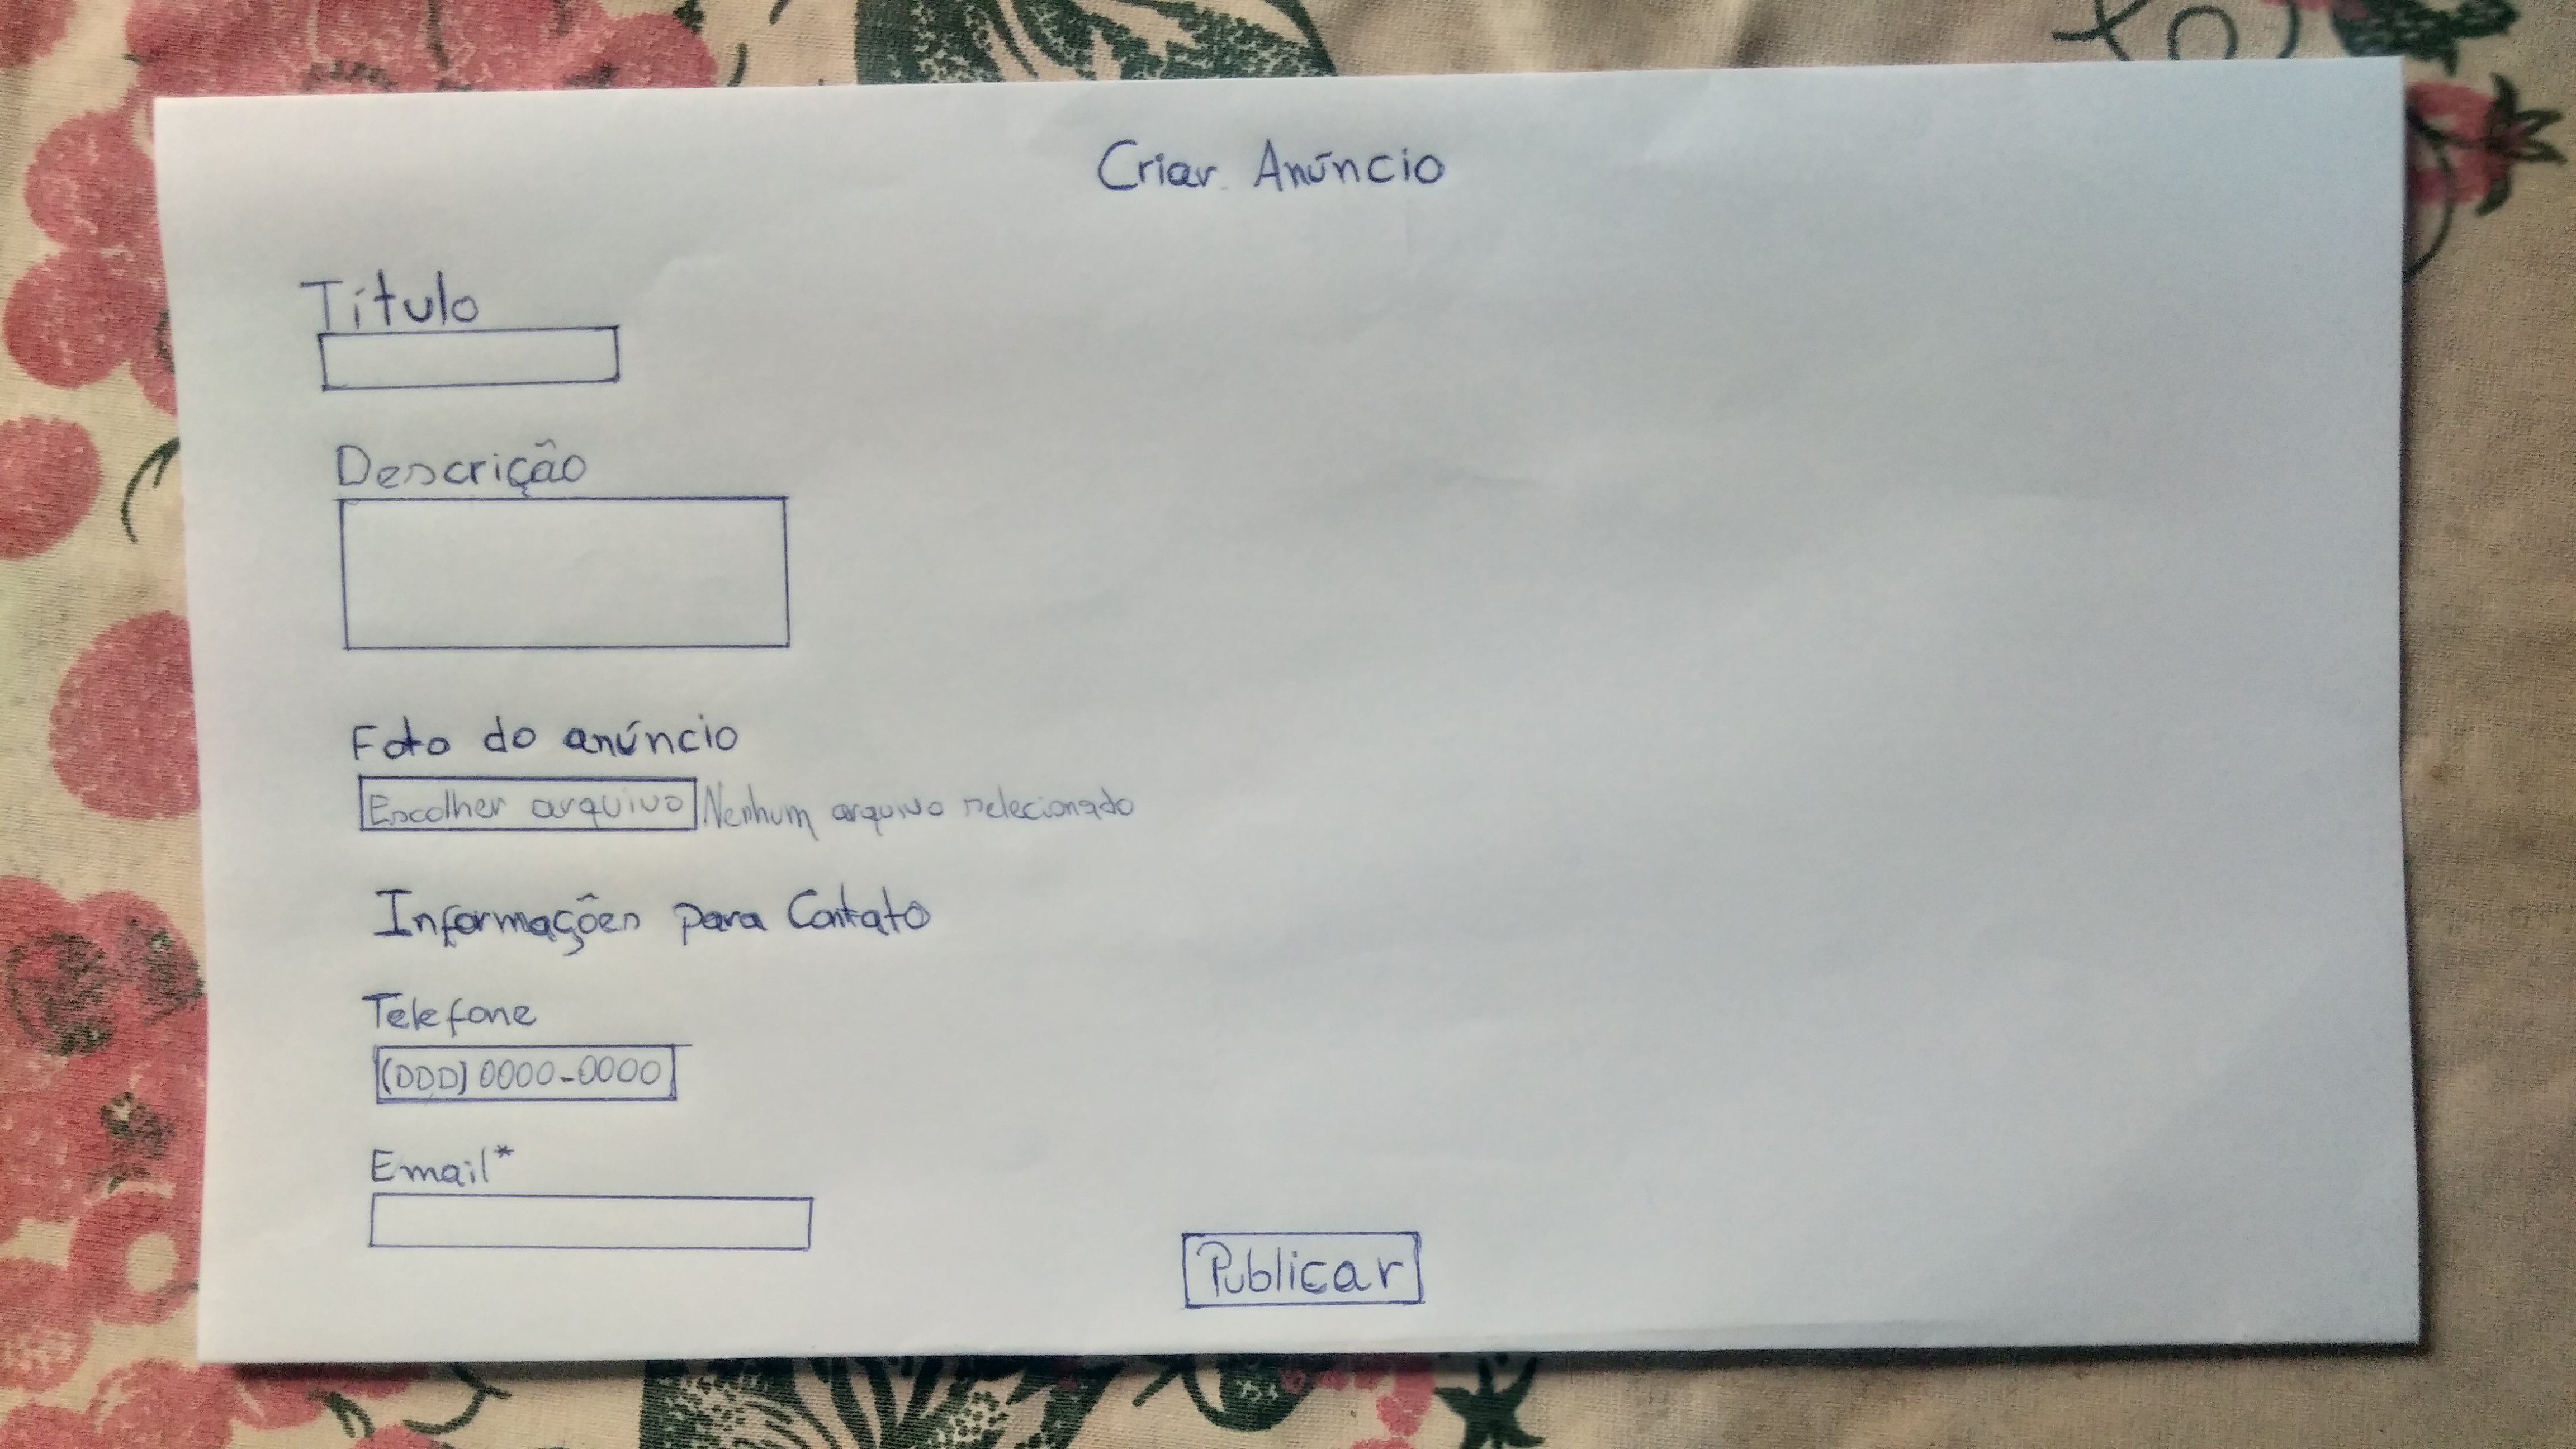 Criar Anúncio
Título
Descrição
Foto do anúncio
Escolher arquivo Nenhum arquivo selecionado
Informações para Contato
Telefone
(DDD) 0000-0000
Email*
Publicar